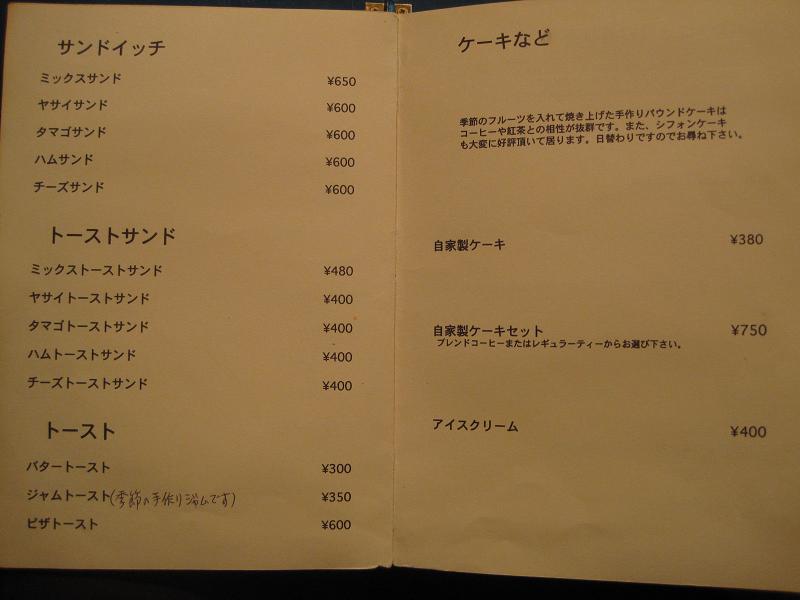 サンドイッチ
ミックスサンド ¥650
ヤサイサンド ¥600
タマゴサンド ¥600
ハムサンド ¥600
チーズサンド ¥600
トーストサンド
ミックストーストサンド ¥480
ヤサイトーストサンド ¥400
タマゴトーストサンド ¥400
ハムトーストサンド ¥400
チーズトーストサンド ¥400
トースト
バタートースト ¥300
ジャムトースト(季節の手作りジャムです) ¥350
ピザトースト ¥600
ケーキなど
季節のフルーツを入れて焼き上げた手作りパウンドケーキは
コーヒーや紅茶との相性が抜群です。また、シフォンケーキ
も大変に好評頂いて居ります。日替わりですのでお尋ね下さい。
自家製ケーキ ¥380
自家製ケーキセット ¥750
ブレンドコーヒーまたはレギュラーティーからお選び下さい。
アイスクリーム ¥400